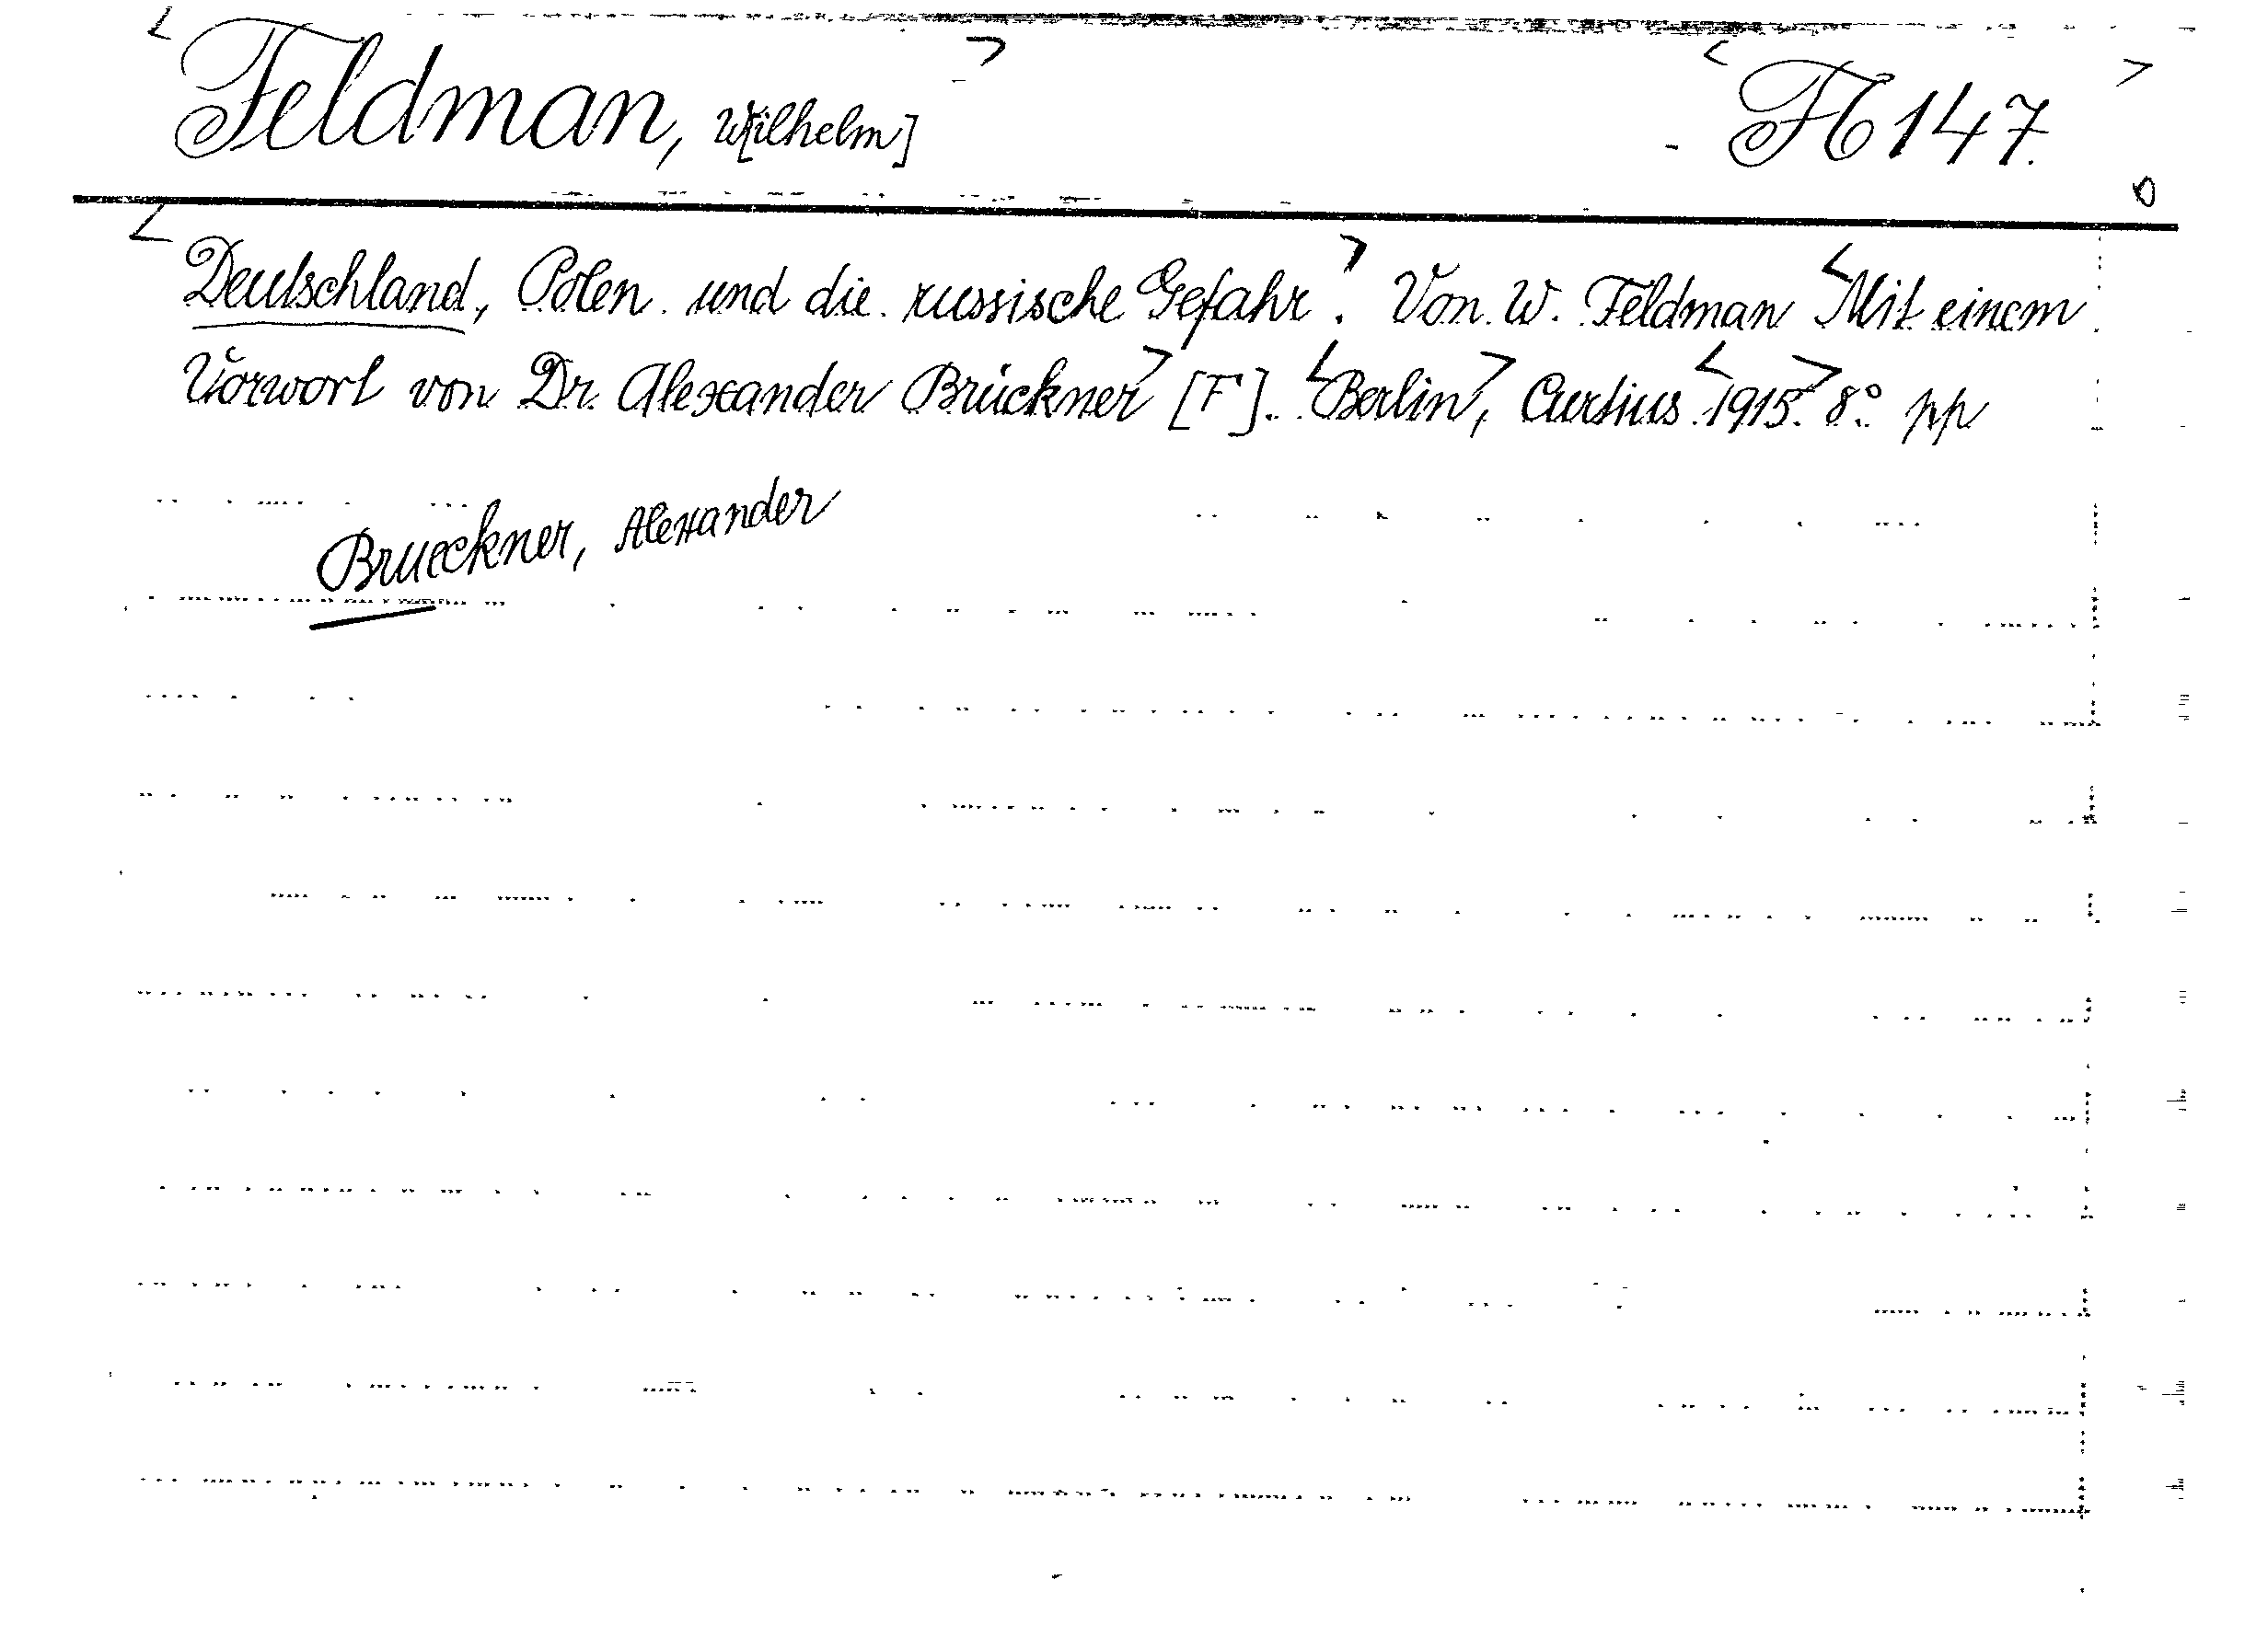 <Feldman, W[ilhelm]> <Fl 147.>
<Deutschland, Polen und die russische Gefahr.> Von W. Feldman <Mit einem
Vorwort von Dr. Alexander Brückner> [F]. <Berlin>, Curtius <1915.> 8º pp
Brueckner, Alexander